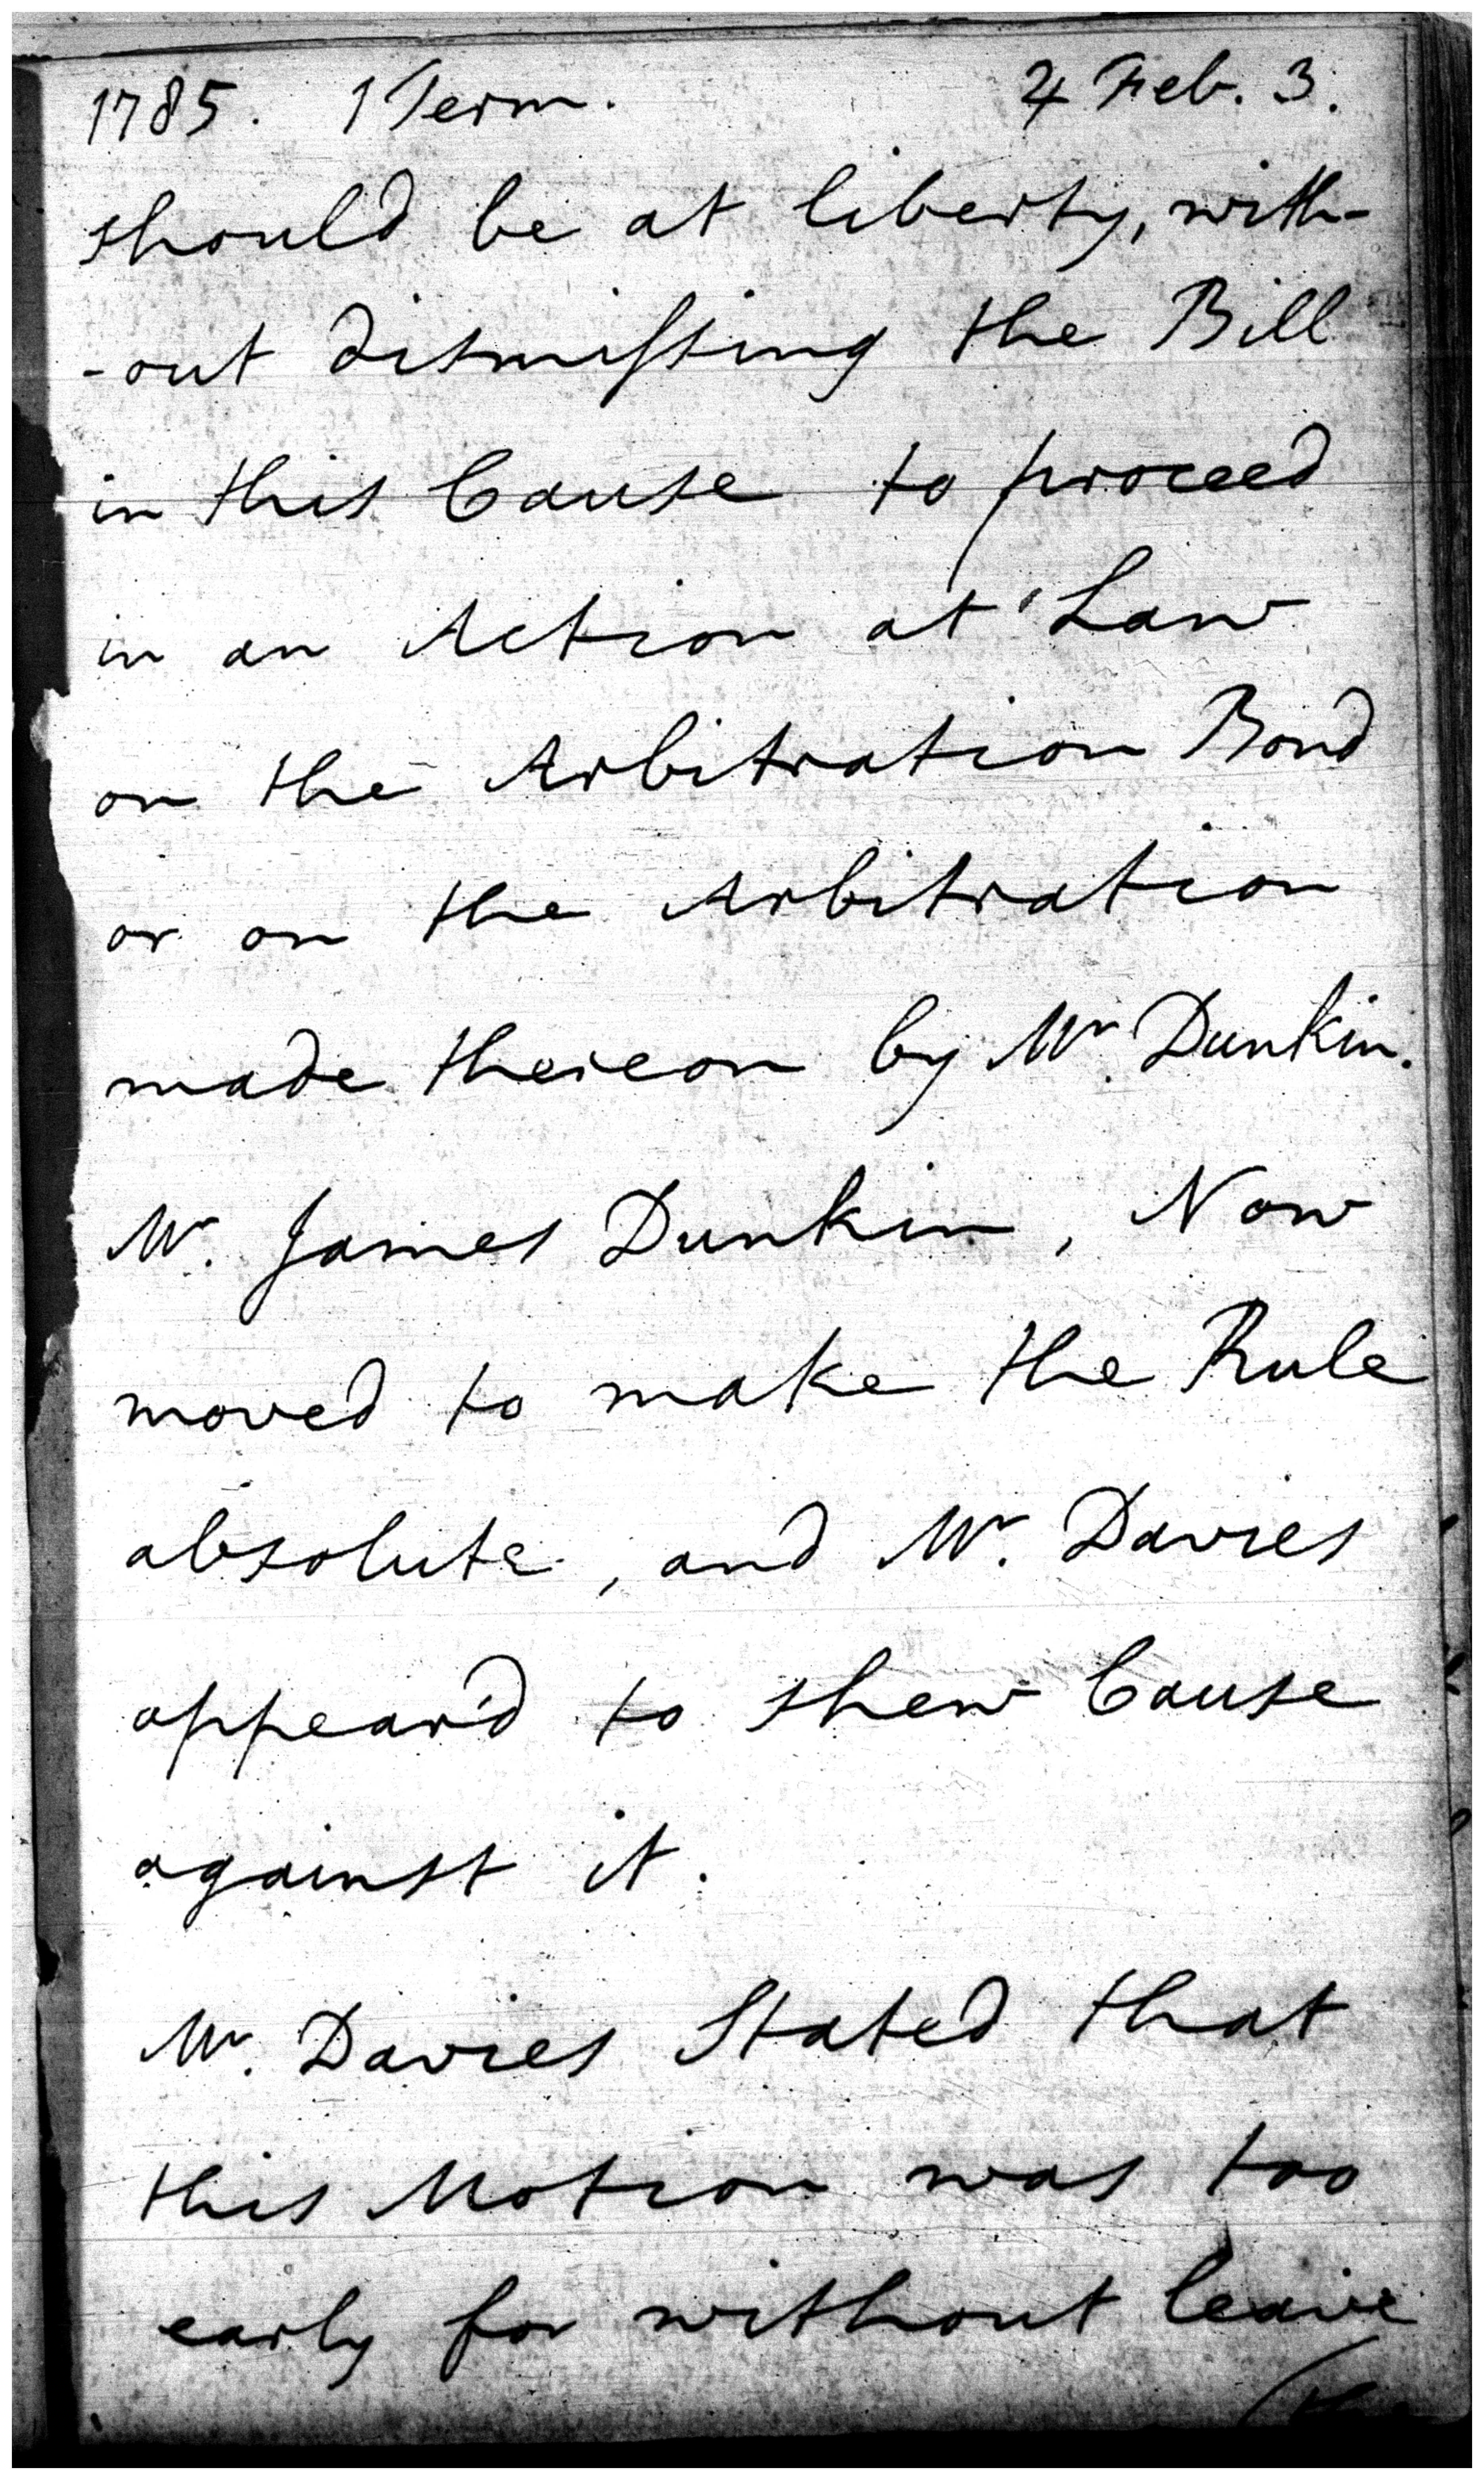 1785. 1 Term. 4 Feb. 3.
should be at liberty, with-
-out dismiſsing the Bill
in this Cause to proceed
in an Action at Law
on the Arbitration Bond
or on the Arbitration
made thereon by Mr. Dunkin.
Mr. James Dunkin, Now
moved to make the Rule
absolute, and Mr. Davies
appear'd to shew Cause
against it.
Mr. Davies Stated that
this Motion was too
early for without leave
(the